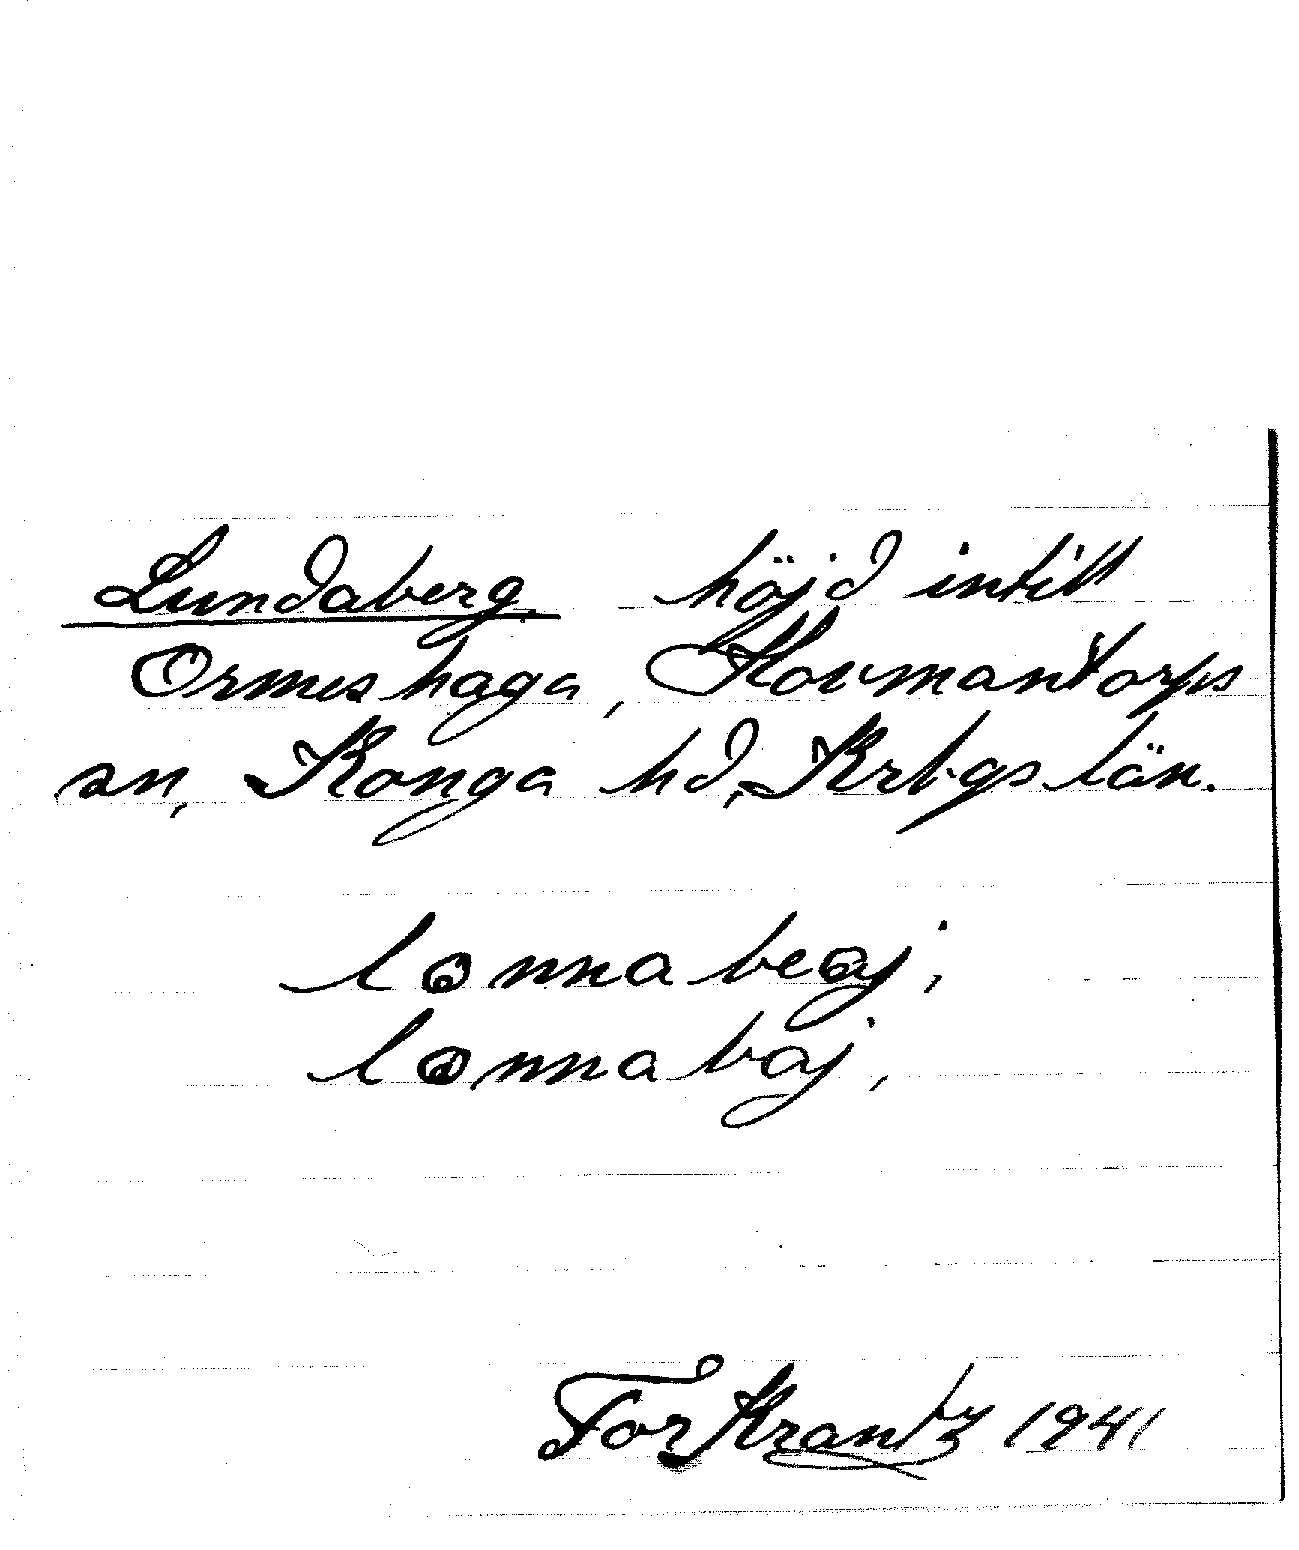 Lundaberg, höjd intill
Ormeshaga, Hovmantorps
sn, Konga hd, Krbgs län.
lɷnnabeaj,
lɷnnabaj,
Tor Krantz 1941